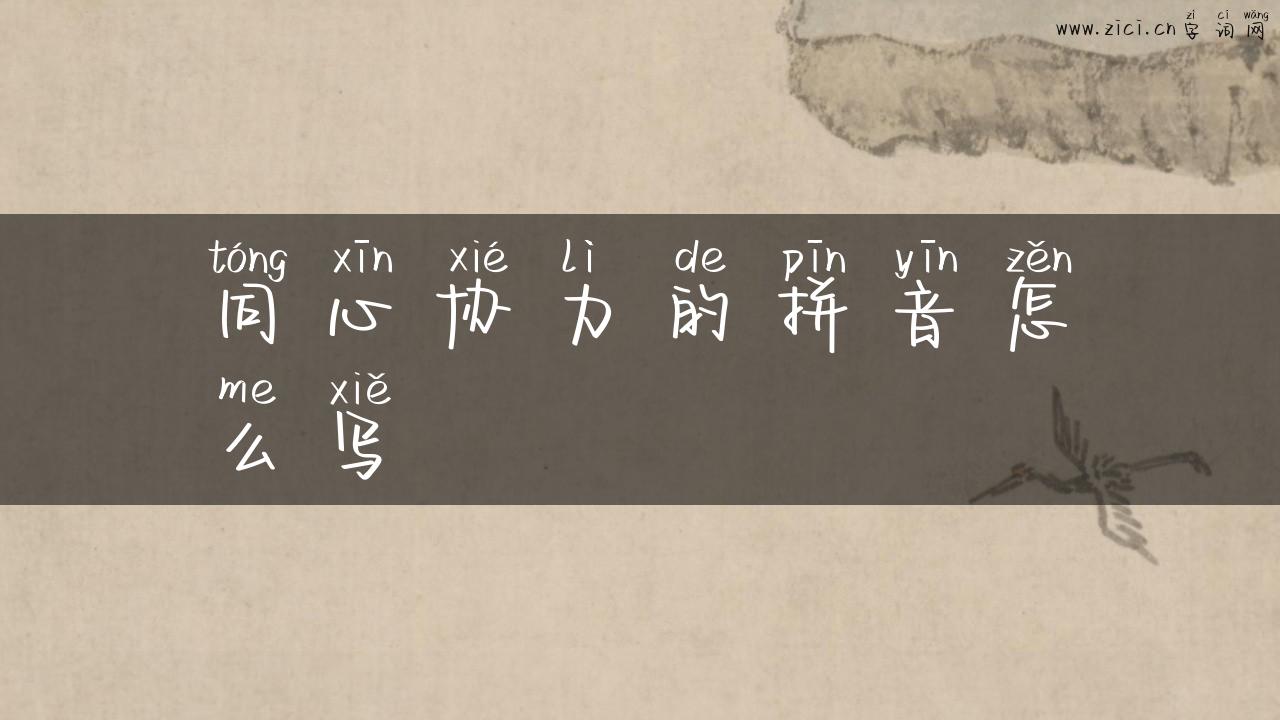 zì cí wǎng
www.zici.cn 字词网
tóng xīn xié lì de pīn yīn zěn
同心协力的拼音怎
me xiě
么写